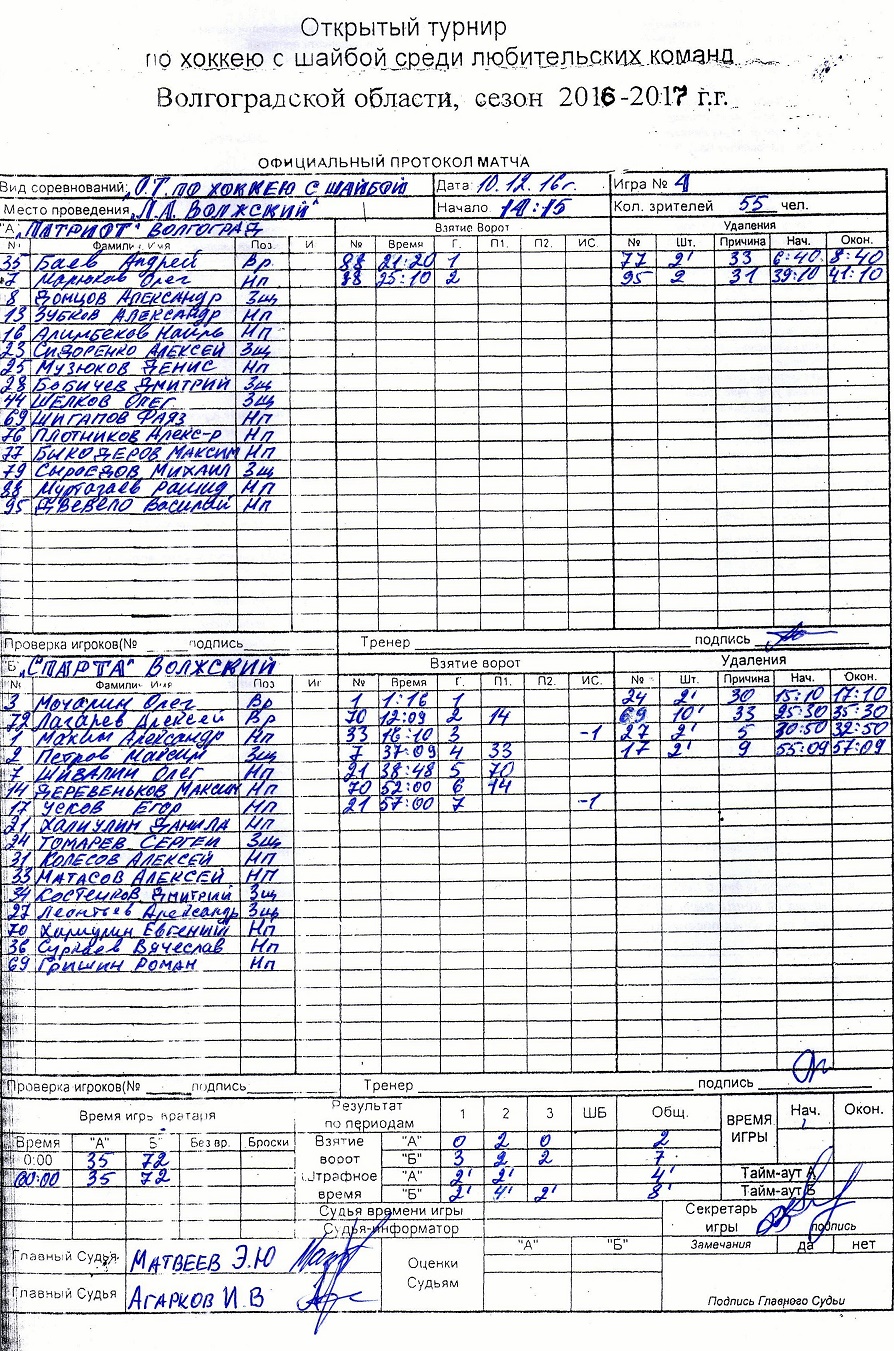 Открытый турнир
по хоккею с шайбой среди любительских команд
Волгоградской области, сезон 2016-2017 г.г.
ОФИЦИАЛЬНЫЙ ПРОТОКОЛ МАТЧА
Вид соревнований: О.Т. ПО ХОККЕЮ С ШАЙБОЙ Дата: 10.12.16г. Игра № 4
Место проведения Л.А. ВОЛЖСКИЙ" Начало 14:15 Кол. зрителей 55 чел.
"А" „ПАТРИОТ" ВОЛГОГРАД Взятие Ворот Удаления
№ Фамилия Имя Поз. И № Время Г. П1. П2. ИС. № Шт. Причина Нач. Окон.
35 Баев Андрей Вр 88 21:20 1 77 2' 33 6:40 8:40
Марюков Олег Нп 88 25:10 2 95 2 31 39:10 41:10
8 ДОНЦОВ АЛЕКСАНДР Зщ
13 ЗУБКОВ АЛЕКСАНДР Нп
16 Алимбеков Наиль Нп
23 СИДОРЕНКО АЛЕКСЕЙ Зщ
25 МУЗЮКОВ ДЕНИС Нп
28 БОБИЧЕВ ДМИТРИЙ Зщ
44 ШЕЛКОВ ОЛЕГ Зщ
69 ШИГАПОВ ФАЯЗ Нп
76 ПЛОТНИКОВ АЛЕКС-Р Нп
77 БЫКОДЕРОВ МАКСИМ Нп
79 СЫРОЕДОВ МИХАИЛ Зщ
88 Муртазаев Рашид Нп
95 ДЕВЕЛО Василий Нп
Проверка игроков(№ подпись Тренер подпись
"Б" „СПАРТА" ВОЛЖСКИЙ Взятие ворот Удаления
№ Фамилия Имя Поз Иг № Время Г. П1. П2. ИС. № Шт. Причина Нач. Окон.
3 Мочалин Олег Вр 1 1:16 1 24 2' 30 15:10 17:10
72 Лазарев Алексей Вр 70 12:09 2 14 69 10' 33 25:30 35:30
1 Махим Александр Нп 33 16:10 3 -1 27 2' 5 30:50 32:50
2 Петров Максим Зщ 7 37:09 4 33 17 2' 9 55:09 57:09
7 ШИВАЛИН ОЛЕГ Нп 21 38:48 5 70
14 ДЕРЕВЕНЬКОВ МАКСИМ Нп 70 52:00 6 14
17 УСКОВ ЕГОР Нп 21 57:00 7 -1
21 ХАЛИУЛИН ДАНИЛА Нп
24 ТОМАРЕВ СЕРГЕЙ Зщ
31 КОЛЕСОВ АЛЕКСЕЙ Нп
33 МАТАСОВ АЛЕКСЕЙ НП
34 КОСТЕНКОВ ДМИТРИЙ Зщ
27 Леонтьев Александр Зщ
70 Халиулин Евгений Нп
36 Сургаев Вячеслав Нп
69 ГРИШИН РОМАН Нп
Проверка игроков(№ подпись Тренер подпись
Время игры вратаря Результат по периодам 1 2 3 ШБ Общ. ВРЕМЯ ИГРЫ Нач. Окон.
Время "А" "Б" Без вр. Броски Взятие "А" 0 2 0 2
0:00 35 72 ворот "Б" 3 2 2 7
00:00 35 72 Штрафное "А" 2' 2' 4' Тайм-аут А
время "Б" 2' 4' 2' 8' Тайм-аут Б
Судья времени игры Секретарь игры подпись
Судья-информатор
"А" "Б" Замечания да нет
Главный Судья МАТВЕЕВ Э.Ю Оценки Судьям
Главный Судья АГАРКОВ И.В
Подпись Главного Судьи